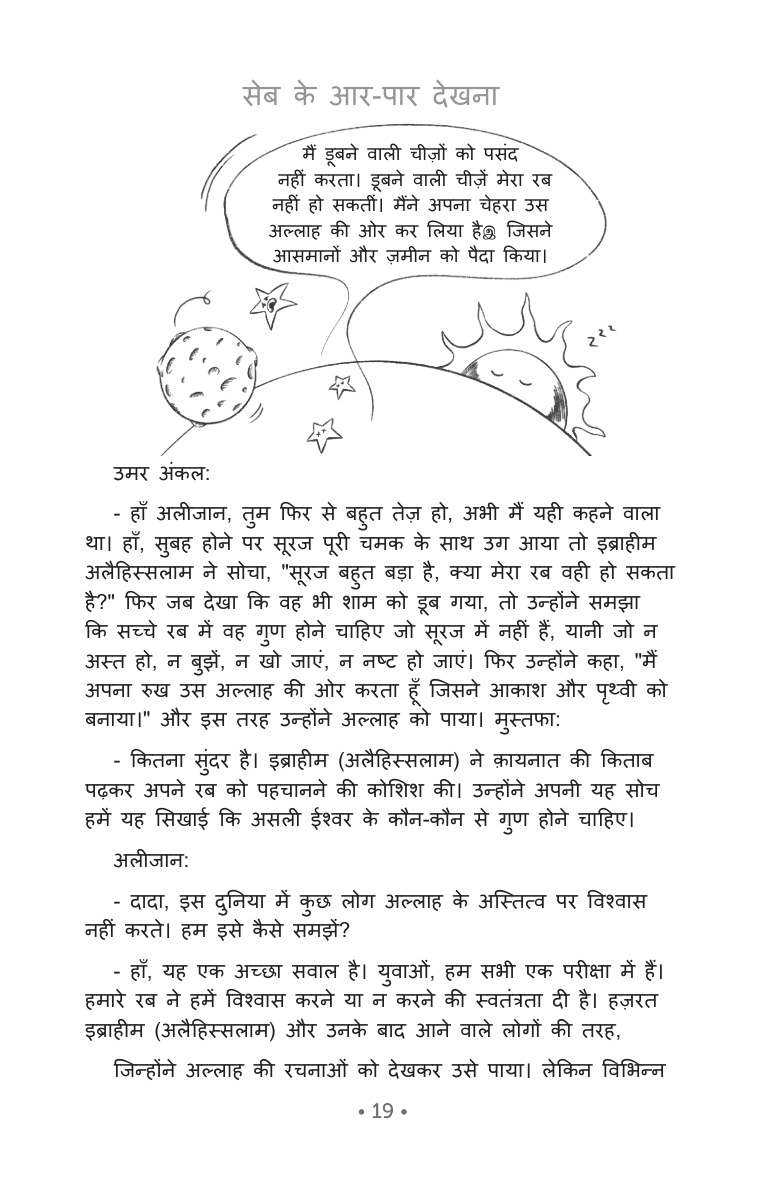 सेब के आर-पार देखना
मैं डूबने वाली चीज़ों को पसंद
नहीं करता। डूबने वाली चीज़ें मेरा रब
नहीं हो सकतीं। मैंने अपना चेहरा उस
अल्लाह की ओर कर लिया हैஇ जिसने
आसमानों और ज़मीन को पैदा किया।
z z z
उमर अंकल:
- हाँ अलीजान, तुम फिर से बहुत तेज़ हो, अभी मैं यही कहने वाला
था। हाँ, सुबह होने पर सूरज पूरी चमक के साथ उग आया तो इब्राहीम
अलैहिस्सलाम ने सोचा, "सूरज बहुत बड़ा है, क्या मेरा रब वही हो सकता
है?" फिर जब देखा कि वह भी शाम को डूब गया, तो उन्होंने समझा
कि सच्चे रब में वह गुण होने चाहिए जो सूरज में नहीं हैं, यानी जो न
अस्त हो, न बुझें, न खो जाएं, न नष्ट हो जाएं। फिर उन्होंने कहा, "मैं
अपना रुख उस अल्लाह की ओर करता हूँ जिसने आकाश और पृथ्वी को
बनाया।" और इस तरह उन्होंने अल्लाह को पाया। मुस्तफा:
- कितना सुंदर है। इब्राहीम (अलैहिस्सलाम) ने क़ायनात की किताब
पढ़कर अपने रब को पहचानने की कोशिश की। उन्होंने अपनी यह सोच
हमें यह सिखाई कि असली ईश्वर के कौन-कौन से गुण होने चाहिए।
अलीजान:
- दादा, इस दुनिया में कुछ लोग अल्लाह के अस्तित्व पर विश्वास
नहीं करते। हम इसे कैसे समझें?
- हाँ, यह एक अच्छा सवाल है। युवाओं, हम सभी एक परीक्षा में हैं।
हमारे रब ने हमें विश्वास करने या न करने की स्वतंत्रता दी है। हज़रत
इब्राहीम (अलैहिस्सलाम) और उनके बाद आने वाले लोगों की तरह,
जिन्होंने अल्लाह की रचनाओं को देखकर उसे पाया। लेकिन विभिन्न
• 19 •